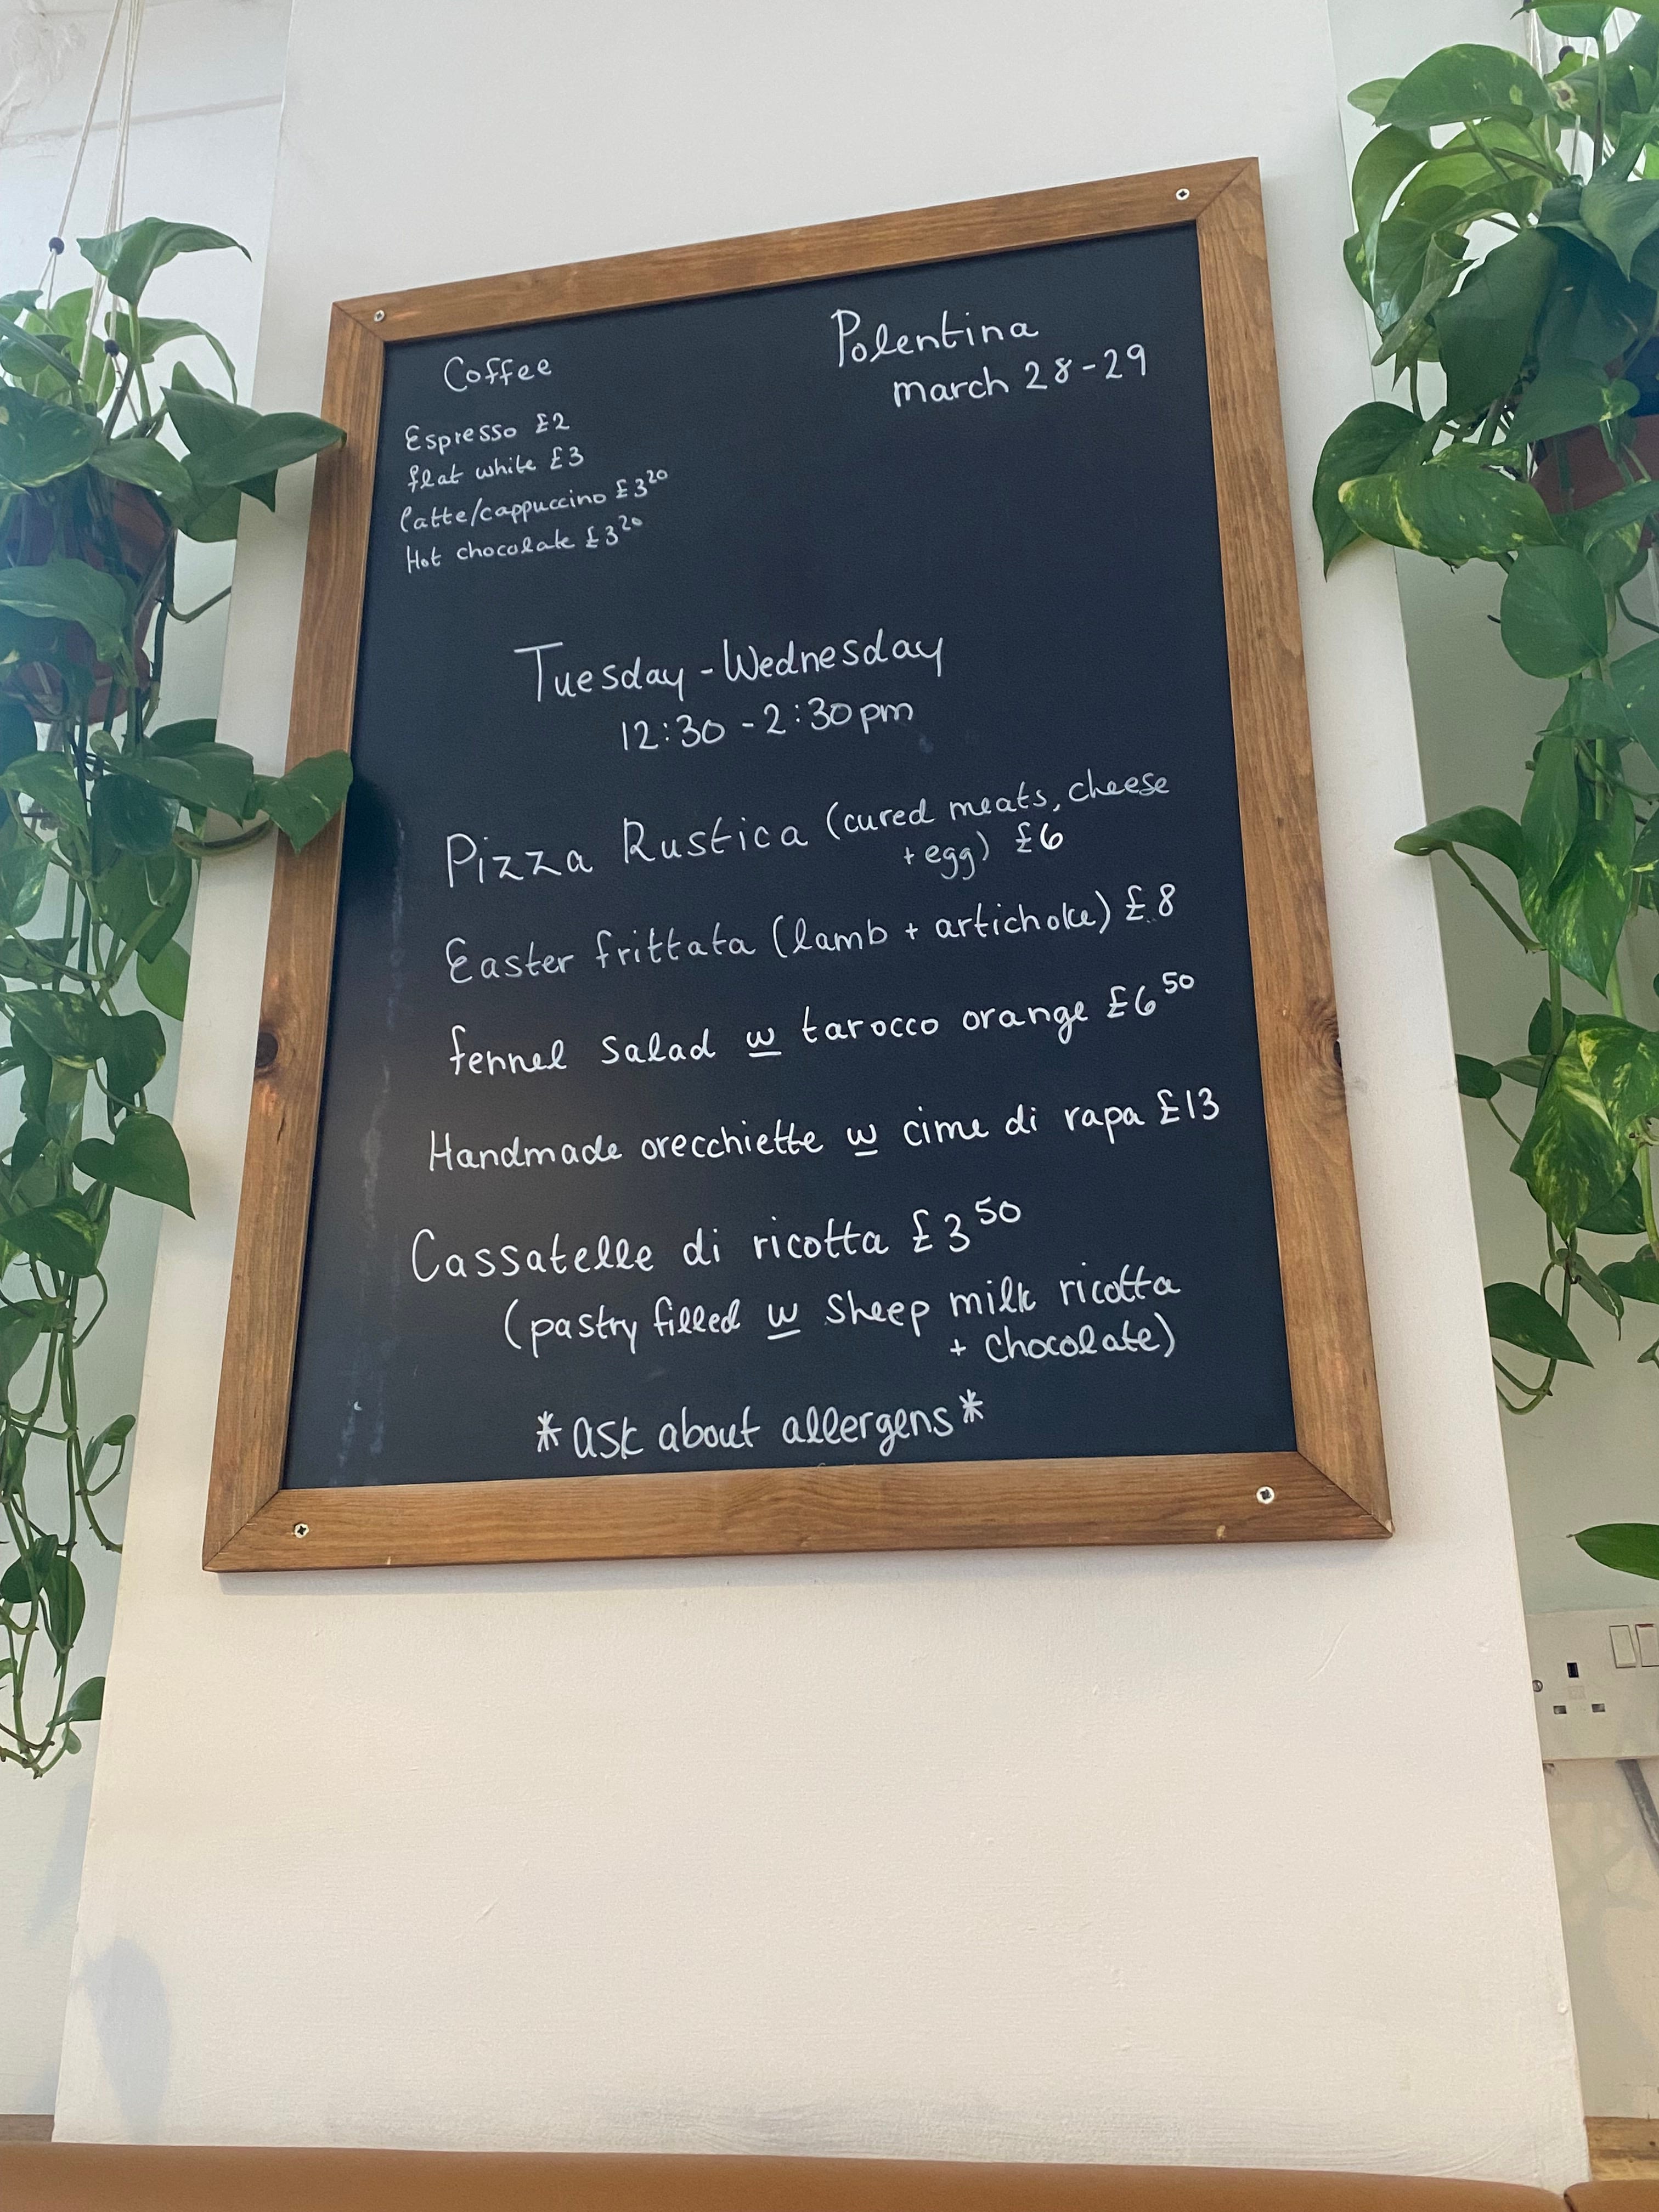 Coffee
Espresso £2
flat white £3
latte/cappuccino £3²⁰
Hot chocolate £3²⁰
Polentina
march 28-29
Tuesday - Wednesday
12:30 - 2:30pm
Pizza Rustica (cured meats, cheese
+ egg) £6
Easter frittata (lamb + artichoke) £8
fennel salad w tarocco orange £6⁵⁰
Handmade orecchiette w cime di rapa £13
Cassatelle di ricotta £3⁵⁰
(pastry filled w sheep milk ricotta
+ chocolate)
*ask about allergens*